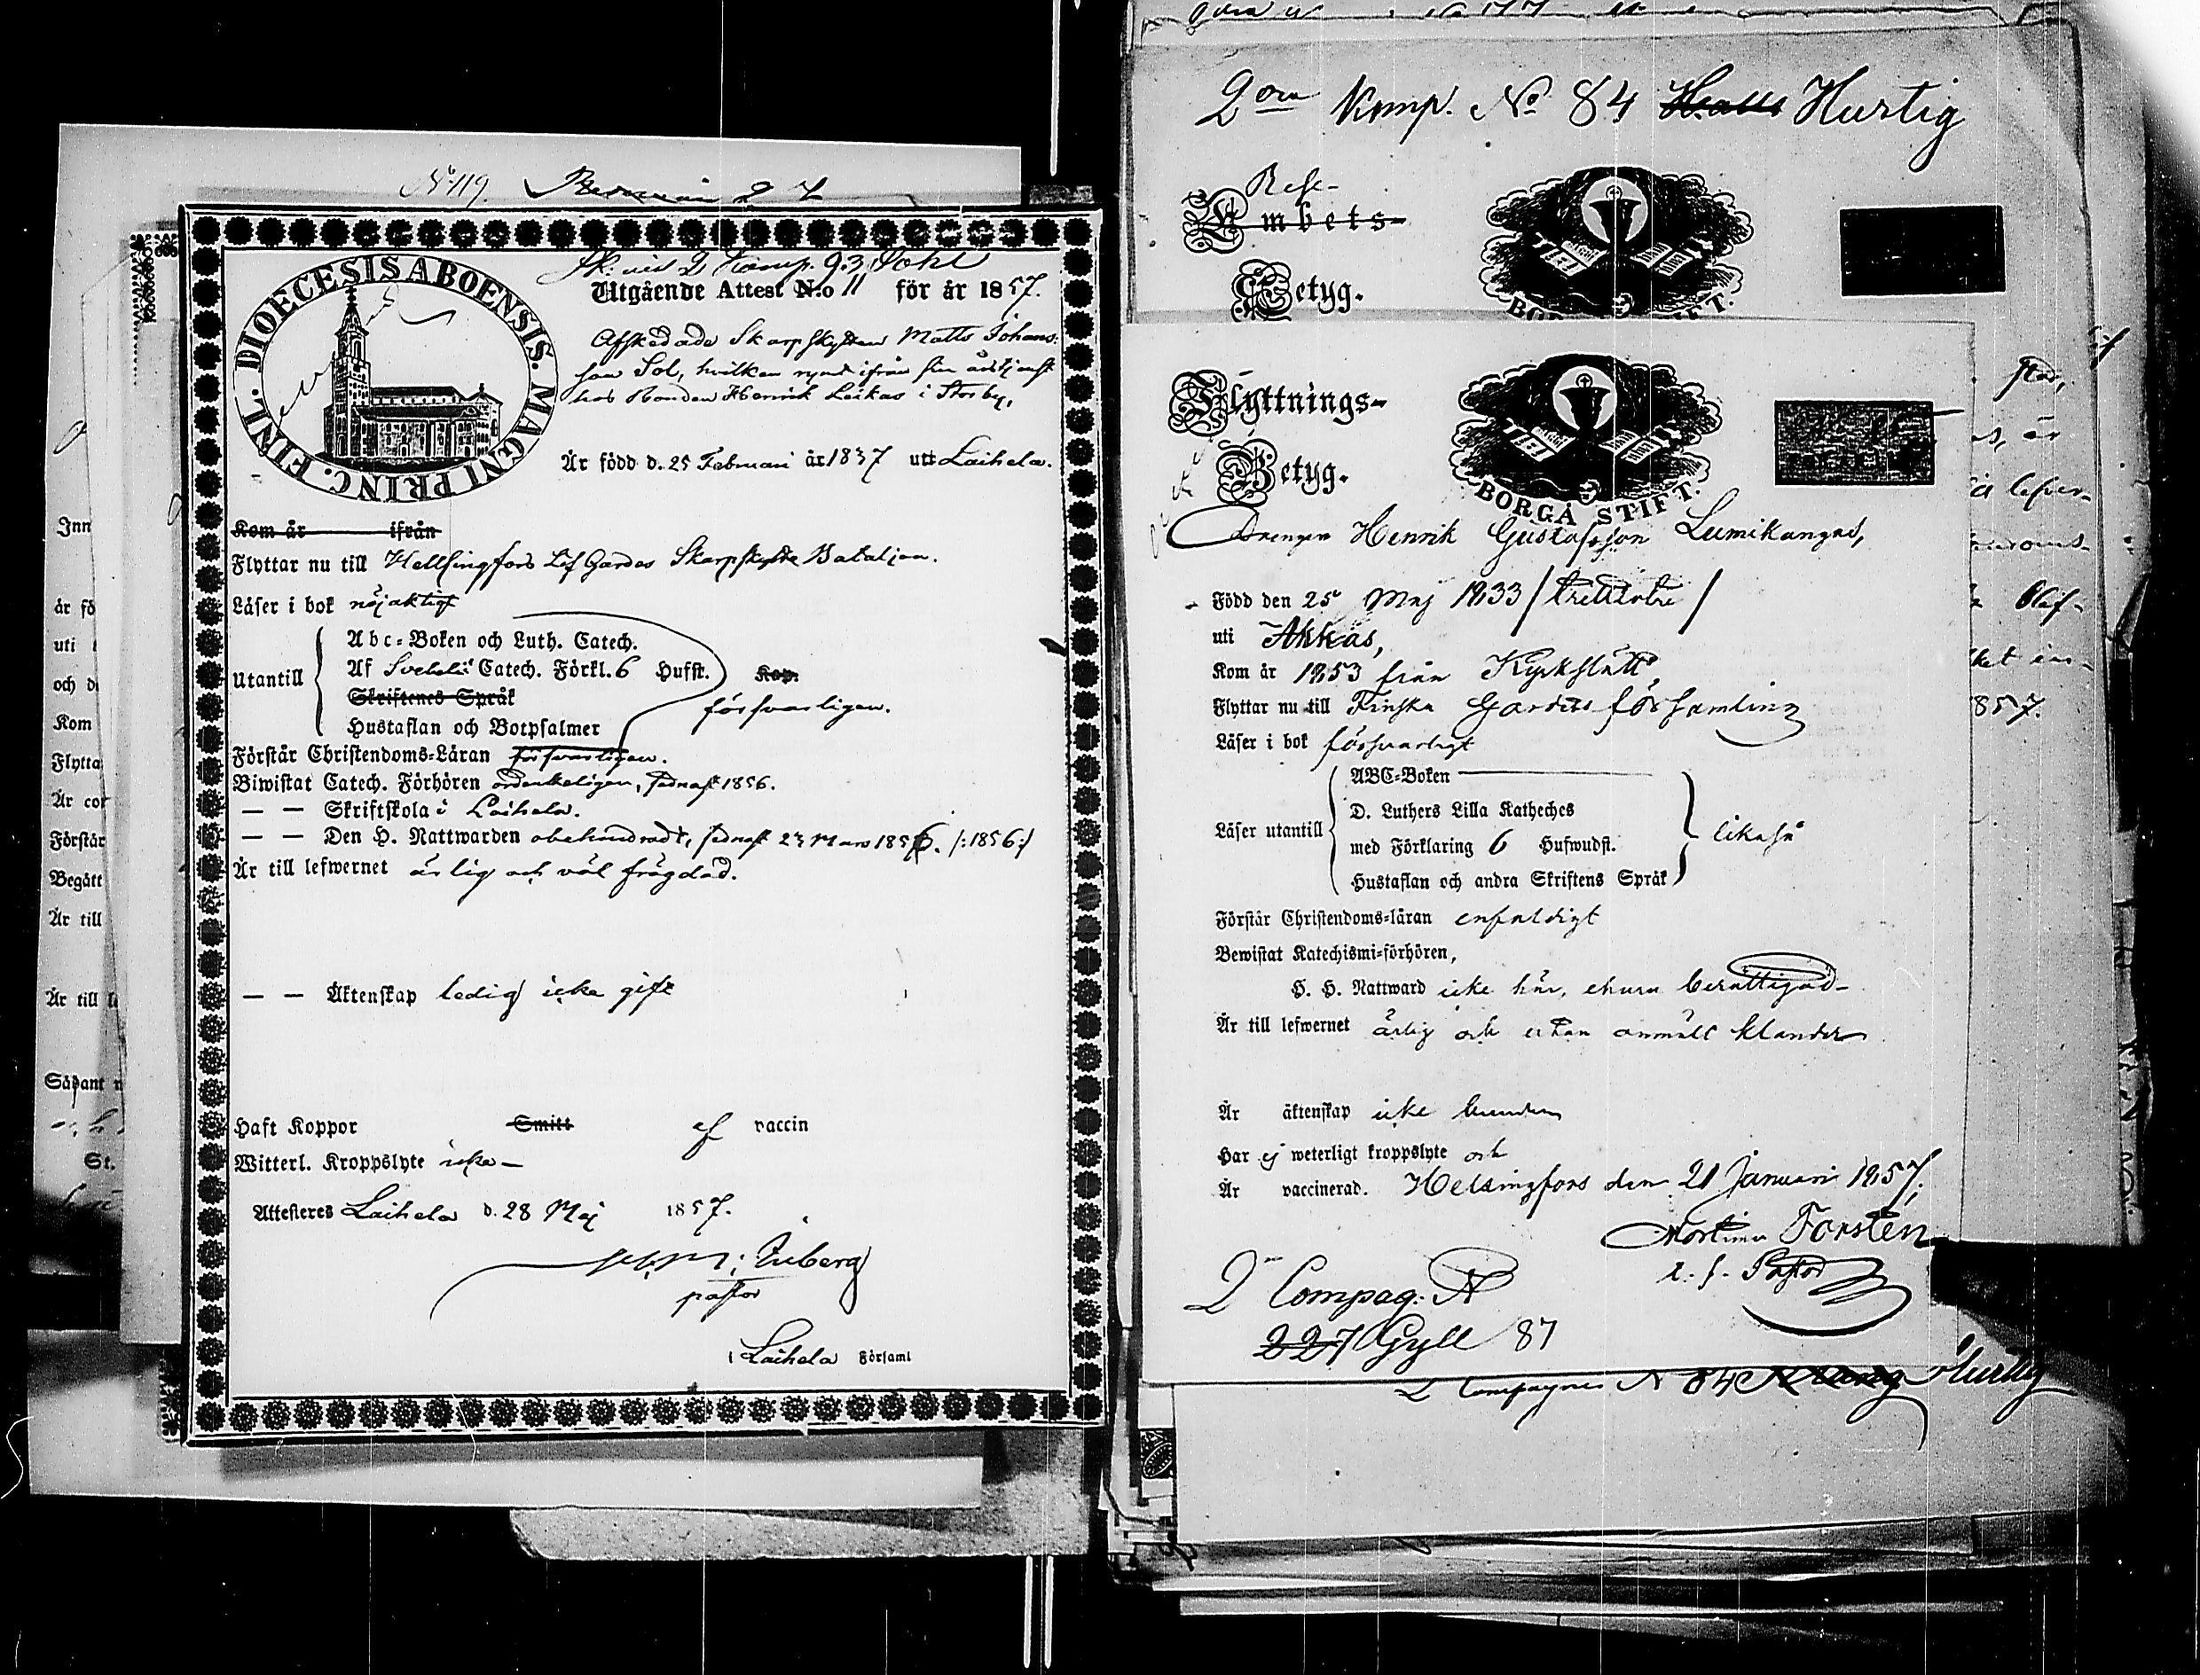 N:o 119.
DIOECESIS ABOENSIS. MAGNI PRINC. FINL.
2 Komp. 93 Pohl
Utgående Attest N:o 11 för år 1857.
Afskedade Skarpskytten Matts Johans-
son Sol, hvilken rymt ifrån sin årstjenst
hos Bonden Henrik Leikas i Storby,
Är född d. 25 Februari år 1837 uti Laihela.
Kom år ifrån
Flyttar nu till Hellsingfors Lif Gardes Skarpskytte Bataljon.
Läser i bok nöjaktigt
Utantill
Abc-Boken och Luth. Catech.
Af Svebelii Catech. Förkl. 6 Hufst. Kap.
Skriftenes Språk
Hustaflan och Botpsalmer
försvarligen.
Förstår Christendoms-Läran försvarligen.
Biwistat Catech. Förhören ordenteligen, sednast 1856.
— — Skriftskola i Laihela.
— — Den H. Nattwarden obehindradt, sednast 23 Mars 1856. /:1856:/
Är till lefwernet ärlig och väl frägdad.
— — Äktenskap ledig icke gift
Haft Koppor Smitt af vaccin
Witterl. Kroppslyte icke —
Attesteres Laihela d. 28 Maj 1857.
pastor
i Laihela Församl
Inn
är fö
uti
och d
Kom
Flytta
Är con
Förstår
Begått
Är till
Är till l
Sådant
St.
2:dra Komp. No 84 Hurtig
Rese-
Embets-
Betyg.
Flyttnings-
Betyg.
BORGÅ STIFT.
Drengen Henrik Gustafsson Lumikangas,
Född den 25 Maj 1833 / trettiotre /
uti Akkas,
Kom år 1853 från Kyrkslätt,
Flyttar nu till Finska Gardets församling
Läser i bok försvarligt
Läser utantill
ABC-Boken
D. Luthers Lilla Katheches
med Förklaring 6 Hufwudst.
Hustaflan och andra Skriftens Språk
likaså
Förstår Christendoms-läran enfaldigt
Bewistat Katechismi-förhören,
H. H. Nattward icke här, ehuru berättigad
Är till lefwernet ärlig och utan anmält klander
Är äktenskap icke bunden
Har ej weterligt kroppslyte och
Är vaccinerad. Helsingfors den 21 Januari 1857.
Forstén
v. p. Pastor
2 Compag: N
227 Gyll 87
2 Compagnie N 84 Hurtig
857.